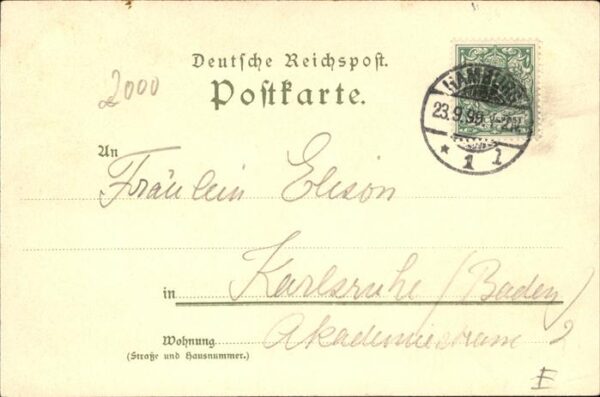 Deutsche Reichspost.
2000
Postkarte.
HAMBURG
23.9.99.
* 1 1
An
Fräulein Elison
in Karlsruhe (Baden)
Wohnung
(Straße und Hausnummer.)
E